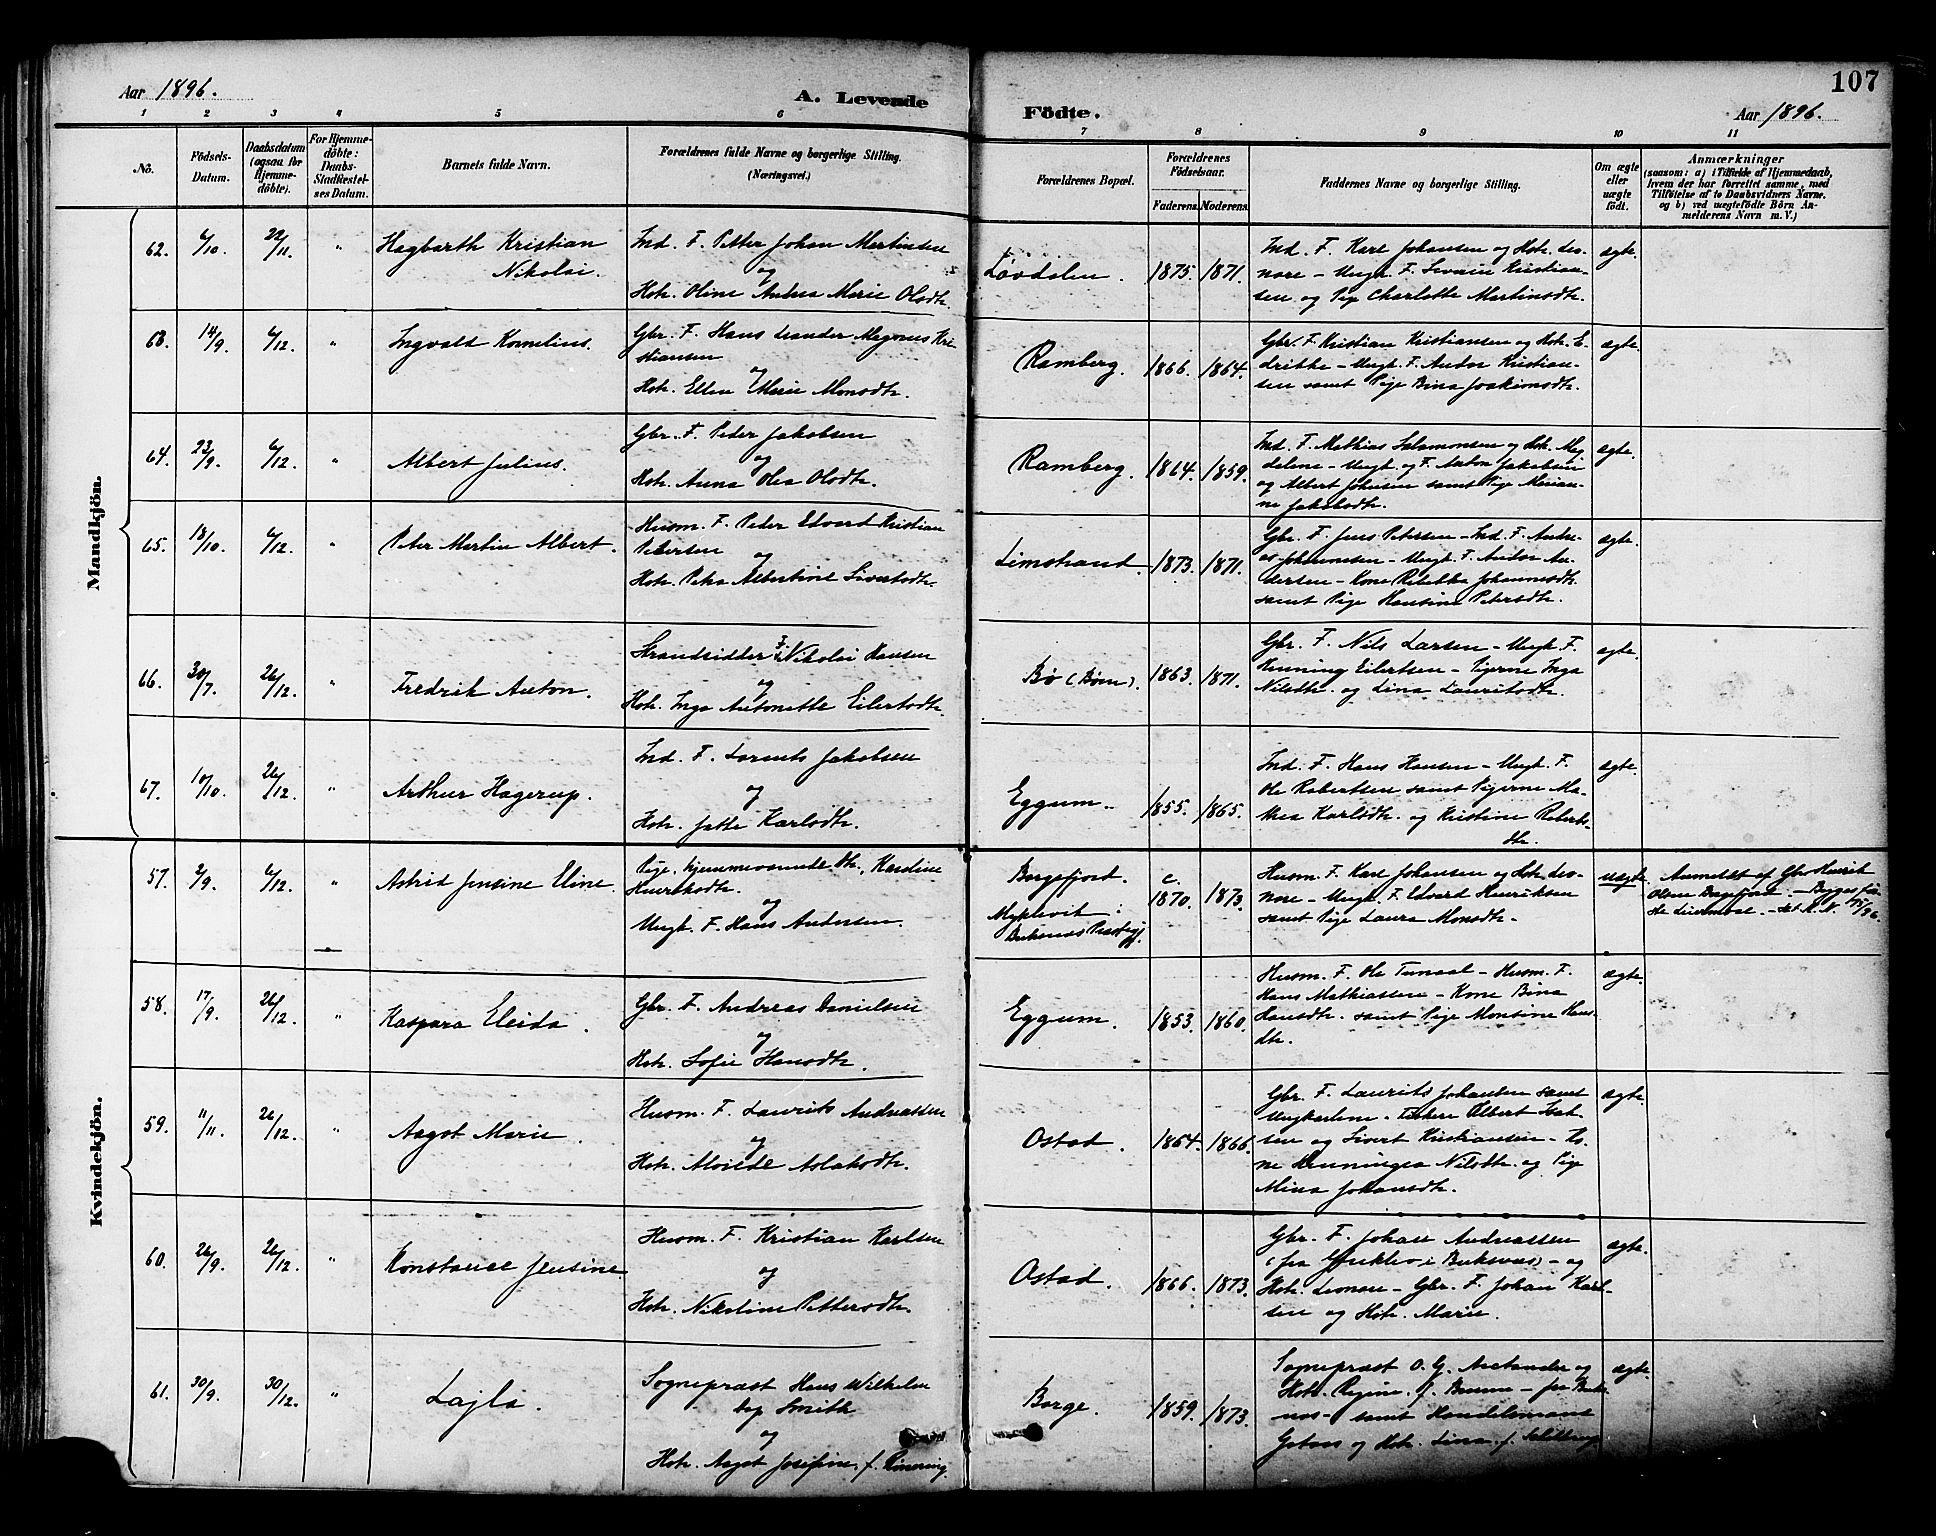 107
Aar 1896.
A. Levende
Födte.
Aar 1896.
1 2 3 4 5 6 7 8 9 10 11
No.
Födsels-
Datum.
Daabsdatum
(ogsaa for
Hjemme-
döbte).
For Hjemme-
döbte:
Daabs-
Stadfæstel-
ses Datum.
Barnets fulde Navn.
Forældrenes fulde Navne og borgerlige Stilling.
(Næringsvei.)
Forældrenes Bopæl.
Forældrenes
Födselsaar.
Faderens. Moderens.
Faddernes Navne og borgerlige Stilling.
Om ægte
eller
uægte
födt.
Anmærkninger
(saasom: a) i Tilfælde af Hjemmedaab,
hvem der har forrettet samme, med
Tilföielse af to Daabsvidners Navne.
og b) ved uægtefödte Börn An-
melderens Navn m. V.)
Mandkjön.
62. 6/10. 22/11. "
Hagbarth Kristian
Nikolai.
Ind. F. Petter Johan Martinsen
og
Hstr. Oline Andrea Marie Olsdtr.
Løvdalen. 1875. 1871.
Ind. F. Karl Johansen og Hstr. Les-
nore - Ungk. F. Kristian-
sen og Pige Charlotte Martinsdtr.
ægte.
63. 14/9. 6/12. "
Ingvald Kornelius.
Gbr. F. Hans Leander Magnus Kri-
stiansen
og
Hstr. Ellen Marie Monsdtr.
Ramberg. 1866. 1864.
Gbr. F. Kristian Kristiansen og Hstr. E-
drikke - Ungk. F. Anton Kristian-
sen samt Pige Bina Joakimsdtr.
ægte.
64. 23/9. 6/12. "
Albert Julius.
Gbr. F. Peder Jakobsen
og
Hstr. Anna Olea Olsdtr.
Ramberg. 1864. 1859.
Ind. F. Mathias Salamonsen og Hstr. Mag-
delene - Ungk. og F. Anton Jakobsen
og Albert Johnsen samt Pige Marian-
ne Jakobsdtr.
ægte.
65. 18/10. 6/12. "
Peter Martin Albert.
Husm. F. Peder Edvard Kristian
Petersen
og
Hstr. Petra Albertine Sivertsdtr.
Limstrand. 1873. 1871.
Gbr. F. Jens Petersen - Ind. F. Andre-
as Johannesen - Ungk. F. Anton An-
dersen - Kone Rebekka Johannesdtr.
samt Pige Hansine Petersdtr.
ægte.
66. 30/7. 26/12. "
Fredrik Anton.
Strandsidder F. Nikolai Hansen
og
Hstr. Inga Antonette Eilertsdtr.
Bø (Bøen). 1863. 1871.
Gbr. F. Nils Larsen - Ungk. F.
Henning Eilertsen - Pigerne Inga
Nilsdtr. og Lina Lauritsdtr.
ægte.
67. 10/10. 26/12. "
Arthur Hagerup.
Ind. F. Lorents Jakobsen
og
Hstr. Jette Karlsdtr.
Eggum. 1855. 1865.
Ind. F. Hans Hansen - Ungk. F.
Ole Robertsen samt Pigerne Ma-
thea Karlsdtr. og Kristine Roberts-
dtr.
ægte.
Kvindekjön.
57. 2/9. 6/12. "
Astrid Jensine Eline.
Pige, hjemmeværende Dtr., Karoline
Henriksdtr.
og
Ungk. F. Hans Andersen.
Borgefjord.
Myklevik i
Buksnes Præstegj.
c.
1870. 1873.
Husm. F. Karl Johansen og Hstr. Les-
nore - Ungk. F. Edvard Henriksen
samt Pige Laura Monsdtr. -
uægte.
Anmeldt af Gbr. Henrik
Olsen Borgefjord.
58. 17/9. 26/12. "
Kaspara Eleida.
Gbr. F. Andreas Danielsen
og
Hstr. Sofie Hansdtr.
Eggum. 1853. 1860.
Husm. F. Ole Tunaal - Husm. F.
Hans Mathiassen - Kone Bina
Hansdtr. samt Pige Monsine Hans-
dtr.
ægte.
59. 11/11. 26/12. "
Aagot Marie.
Husm. F. Laurits Andreassen
og
Hstr. Alvilde Aslaksdtr.
Ostad. 1864. 1866.
Gbr. F. Laurits Johansen samt
Ungkarlene - Fiskere Albert Isak-
sen og Sivert Kristiansen - Ko-
ne Henningea Nilsdtr. og Pige
Mina Johansdtr.
ægte.
60. 26/9. 26/12. "
Konstance Jensine.
Husm. F. Kristian Karlsen
og
Hstr. Nikoline Pettersdtr.
Ostad. 1866. 1873.
Gbr. F. Johan Andreassen
(fra i Buksnæs) - og
Hstr. Leonore - Gbr. F. Johan Karl-
sen og Hstr. Marie.
ægte.
61. 30/9. 30/12. "
Lajla.
Sognepræst Hans Wilhelm
Smith
og
Hstr. Aagot Josefine, f.
Borge. 1859. 1873.
Sognepræst O. G. og
Hstr. Regine, f. - fra Buks-
næs - samt Handelsmand
og Hstr. Lina, f.
ægte.